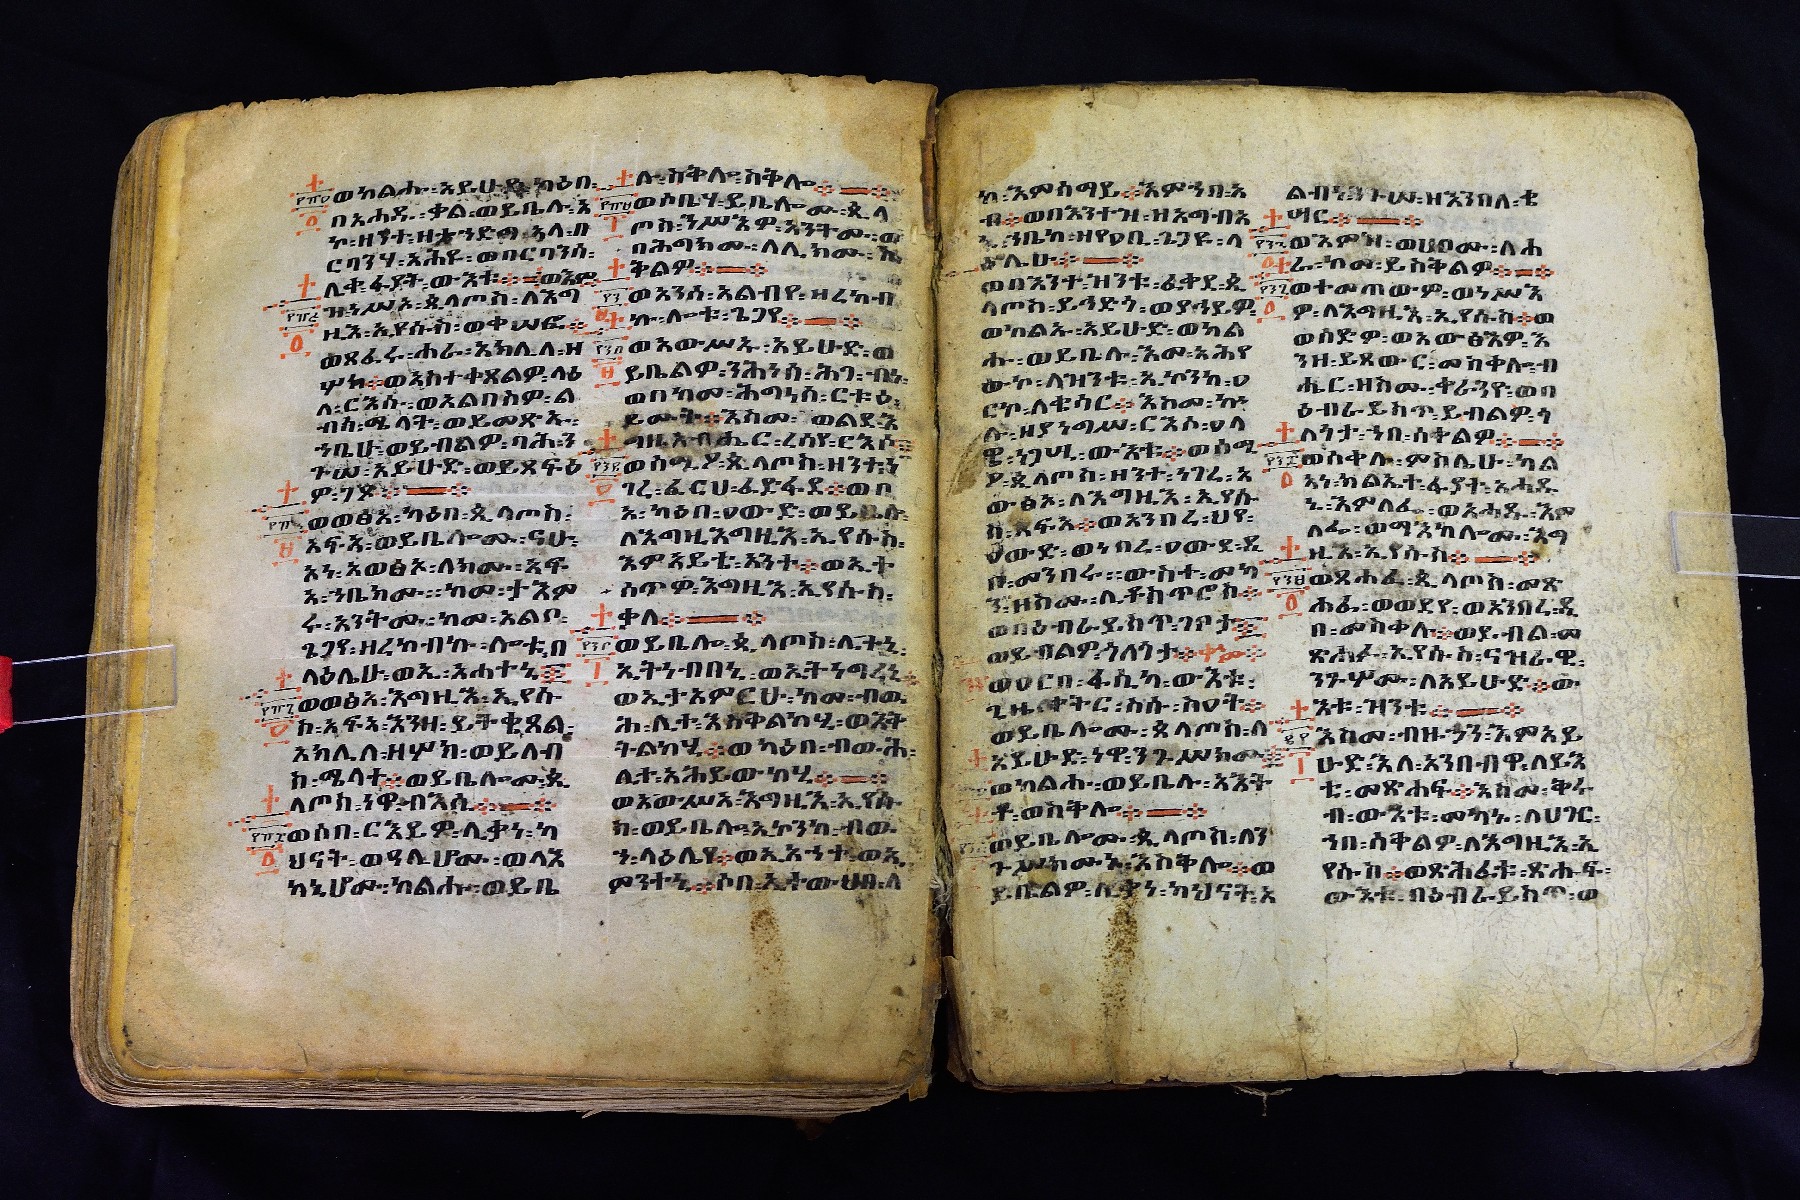 ወከልሑ ፡ አይሁድ ፡ ካዕበ
በአሐዱ ፡ ቃል ፡ ወይቤሉ ፡ አ
ኮ ፡ ዘንተ ፡ ዘትኅድግ ፡ አላ ፡ በ
ርባንሃ ፡ አሕዩ ፡ ወበርባንሰ ፡
ሊቀ ፡ ፈያት ፡ ውእቱ ።
ዝ ፡ ነሥአ ፡ ጲላጦስ ፡ ለእግ
ዚእ ፡ ኢየሱስ ፡ ወቀሠፎ ።
ወጸፈሩ ፡ ሐራ ፡ አክሊለ ፡ ዘ
ሦክ ። ወአስተቀጸልዎ ፡ ላዕ
ለ ፡ ርእሱ ፡ ወአልበስዎ ፡ ል
ብሰ ፡ ሜላት ፡ ወይመጽኡ ፡
ኀቤሁ ፡ ወይብልዎ ፡ ባሕ ፡ ን
ጉሠ ፡ አይሁድ ፡ ወይጸፍዕ
ዎ ፡ ገጾ ።
ወወፅአ ፡ ካዕበ ፡ ጲላጦስ ፡
አፍአ ፡ ወይቤሎሙ ፡ ናሁ ፡
አነ ፡ አወፅኦ ፡ ለክሙ ፡ አፍ
አ ፡ ኀቤክሙ ፡ ከመ ፡ ታእም
ሩ ፡ አንትሙ ፡ ከመ ፡ አልቦ ፡
ጌጋየ ፡ ዘረከብኩ ፡ ሎቱ ፡ በ
ላዕሌሁ ፡ ወኢ ፡ አሐተኒ ።
ወወፅአ ፡ እግዚእ ፡ ኢየሱ
ስ ፡ አፍአ ፡ እንዘ ፡ ይትቄጸል ፡
አክሊለ ፡ ዘሦክ ፡ ወይለብ
ስ ፡ ሜላት ። ወይቤሎሙ ፡ ጲ
ላጦስ ፡ ነዋ ፡ ብእሲ ።
ወሶበ ፡ ርእይዎ ፡ ሊቃነ ፡ ካ
ህናት ፡ ወዓሊሆሙ ፡ ወላእ
ካኒሆሙ ፡ ከልሑ ፡ ወይቤ
ሉ ፡ ስቅሎ ፡ ስቅሎ ።
ወሶቤሃ ፡ ይቤሎሙ ፡ ጲላ
ጦስ ፡ ንሥእዎ ፡ አንትሙ ፡ ወ
በሕግክሙ ፡ ለሊክሙ ፡ ስ
ቅልዎ ።
ወአንሰ ፡ አልብየ ፡ ዘረከብ
ኩ ፡ ሎቱ ፡ ጌጋየ ።
ወአውሥኡ ፡ አይሁድ ፡ ወ
ይቤልዎ ፡ ንሕነሰ ፡ ሕገ ፡ ብነ ፡
ወበከመ ፡ ሕግነሰ ፡ ርቱዕ ፡
ይሙት ። እስመ ፡ ወልደ ፡ እ
ግዚአብሔር ፡ ረሰየ ፡ ርእሶ ።
ወሰሚዖ ፡ ጲላጦስ ፡ ዘንተ ፡ ነ
ገረ ፡ ፈርሀ ፡ ፈድፋደ ። ወቦ
አ ፡ ካዕበ ፡ ዐውደ ፡ ወይቤሎ ፡
ለእግዚእ ፡ እግዚእ ፡ ኢየሱስ ፡
እምአይቴ ፡ አንተ ። ወኢት
ሰጥዎ ፡ እግዚእ ፡ ኢየሱስ ፡
ቃለ ።
ወይቤሎ ፡ ጲላጦስ ፡ ሊተኒ ፡
ኢትነብበኒ ፡ ወኢትነግረኒ ።
ወኢታአምርሁ ፡ ከመ ፡ ብወ
ሕ ፡ ሊተ ፡ እስቅልከሂ ፡ ወእት
ትልከሂ ። ወካዕበ ፡ ብውሕ ፡
ሊተ ፡ አሕይውከሂ ።
ወአውሥአ ፡ እግዚእ ፡ ኢየሱ
ስ ፡ ወይቤሎ ፡ እኮንከ ፡ ብው
ኀ ፡ ላዕሌየ ። ወኢ ፡ አኀተ ፡ ወኢ
ምንተኒ ። ሶበ ፡ ኢተውህበ ፡ ለ
ከ ፡ እምሰማይ ። እምኀበ ፡ አ
ብ ። ወበእንተዝ ፡ ዘአግብአ
ኒ ፡ ኀቤከ ፡ ዘየዐቢ ፡ ጌጋዩ ፡ ላ
ዕሌሁ ።
ወበእንተ ፡ ዝንቱ ፡ ፈቀደ ፡ ጲ
ላጦስ ፡ ይኅድጎ ፡ ወያኅይዎ ፡
ወከልኡ ፡ አይሁድ ፡ ወከል
ሑ ፡ ወይቤሉ ፡ እመ ፡ አሕየ
ውኮ ፡ ለዝንቱ ፡ ኢኮንከ ፡ ዐ
ርኮ ፡ ለቄሳር ። እስመ ፡ ኵ
ሉ ፡ ዘያነግሥ ፡ ርእሶ ፡ ዐላ
ዌ ፡ ነጋሢ ፡ ውእቱ ። ወሰሚ
ዖ ፡ ጲላጦስ ፡ ዘንተ ፡ ነገረ ፡ አ
ውፅኦ ፡ ለእግዚእ ፡ ኢየሱ
ስ ፡ አፍአ ። ወአንበረ ፡ ህየ ፡
ዐውደ ፡ ወነበረ ፡ ዐውደ ፡ ዲ
በ ፡ መንበሩ ፡ ውስተ ፡ መካ
ን ፡ ዘስሙ ፡ ሊቶስጥሮስ ፡
ወበዕብራይስጥ ፡ ገፃታ ።
ወይብልዎ ፡ ጎለጎታ ።
ወዐርበ ፡ ፋሲካ ፡ ውእቱ ፡
ጊዜ ፡ ቀትር ፡ ስሱ ፡ ሰዐት ።
ወይቤሎሙ ፡ ጲላጦስ ፡ ለ
አይሁድ ፡ ነዋ ፡ ንጉሥክሙ ።
ወከልሑ ፡ ወይቤሉ ፡ አእት
ቶ ፡ ወስቅሎ ።
ወይቤሎሙ ፡ ጲላጦስ ፡ ለን
ጉሥክሙኑ ፡ እስቅሎ ። ወ
ይቤልዎ ፡ ሊቃነ ፡ ካህናት ፡ አ
ልብነ ፡ ንጉሠ ፡ ዘእንበለ ፡ ቄ
ሣር ።
ወእምዝ ፡ ወሀቦሙ ፡ ለሐ
ራ ፡ ከመ ፡ ይስቅልዎ ።
ወተመጠውዎ ፡ ወነሥእ
ዎ ፡ ለእግዚእ ፡ ኢየሱስ ። ወ
ወሰድዎ ፡ ወአውፅእዎ ፡ እ
ንዘ ፡ ይጸውር ፡ መስቀሎ ፡ ብ
ሔር ፡ ዘስሙ ፡ ቀራንዮ ፡ ወበ
ዕብራይስጥ ፡ ይብልዎ ፡ ጎ
ለጎታ ፡ ኀበ ፡ ሰቀልዎ ።
ወሰቀሉ ፡ ምስሌሁ ፡ ካል
አነ ፡ ክልኤተ ፡ ፈያተ ፡ አሐዱ
ኒ ፡ እምለፌ ፡ ወአሐዱ ፡ እም
ለፌ ፡ ወማእከሎሙ ፡ እግ
ዚእ ፡ ኢየሱስ ።
ወጸሐፈ ፡ ጲላጦስ ፡ መጽ
ሐፈ ፡ ወወደየ ፡ ወአንበረ ፡ ዲ
በ ፡ መስቀሉ ። ወይብል ፡ መ
ጽሐፉ ፡ ኢየሱስ ፡ ናዝራዊ ፡
ንጉሦሙ ፡ ለአይሁድ ። ው
እቱ ፡ ዝንቱ ።
እስመ ፡ ብዙኃን ፡ እምአይ
ሁድ ፡ እለ ፡ አንበብዋ ፡ ለይእ
ቲ ፡ መጽሐፍ ። እስመ ፡ ቅሩ
ብ ፡ ውእቱ ፡ መካኑ ፡ ለሀገር ፡
ኀበ ፡ ሰቀልዎ ፡ ለእግዚእ ፡ ኢ
የሱስ ። ወጽሕፈቱ ፡ ጽሑፍ ፡
ውእቱ ፡ በዕብራይስጥ ፡ ወ